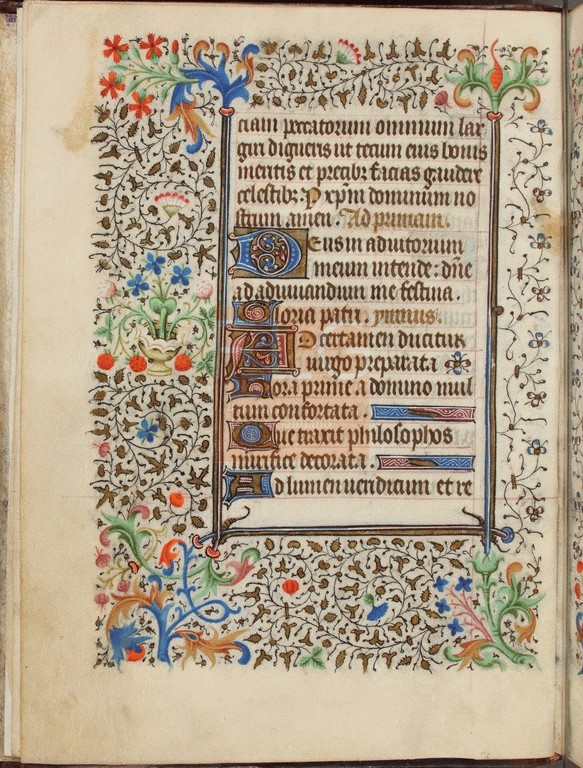 ciam peccatorum omnium lar
giri digneris ut tecum eius bonis
meritis et precibz facias gaudere
celestibz. P xp̄m dominum no
strum amen. Ad primam.
Deus in adiutorium
meum intende: dn̄e
ad adiuuandum me festina.
Gloria patri. ymnus.
Ad certamen ducitur
uirgo preparata
Hora prime a domino mul
tum confortata.
Que traxit philosophos
mirifice decorata.
Ad lumen ueridicum et re